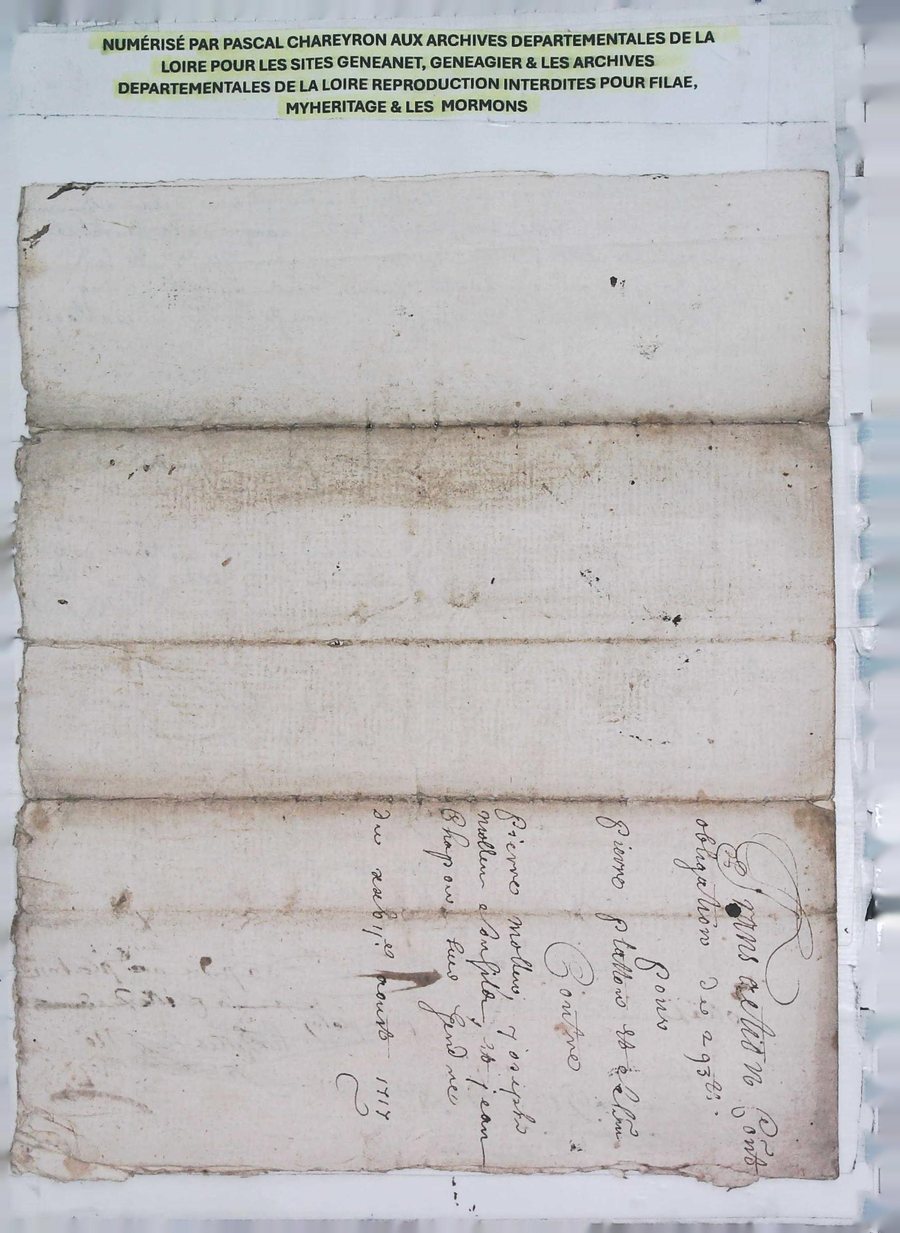 NUMÉRISÉ PAR PASCAL CHAREYRON AUX ARCHIVES DEPARTEMENTALES DE LA
LOIRE POUR LES SITES GENEANET, GENEAGIER & LES ARCHIVES
DEPARTEMENTALES DE LA LOIRE REPRODUCTION INTERDITES POUR FILAE,
MYHERITAGE & LES MORMONS
Transaction Cont
obligation de 293
Pour
Pierre platton et
Contre
Pierre mollin, Joseph
mollin et jean
Chapon, gendre
du aoust 1717